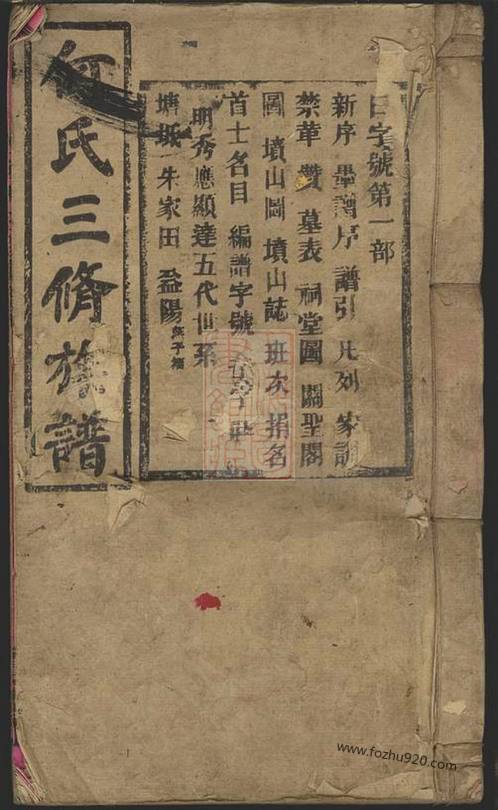 日字號第一部
新序 墨譜序 譜引 凡列 家訓
禁華 贊 墓表 祠堂圖 關聖閣
圖 墳山圖 墳山誌 班次 捐名
首士名目 編譜字號
明秀應顯達五代世系
塘坻 朱家田 益陽
何氏三脩族譜
www.fozhu920.com